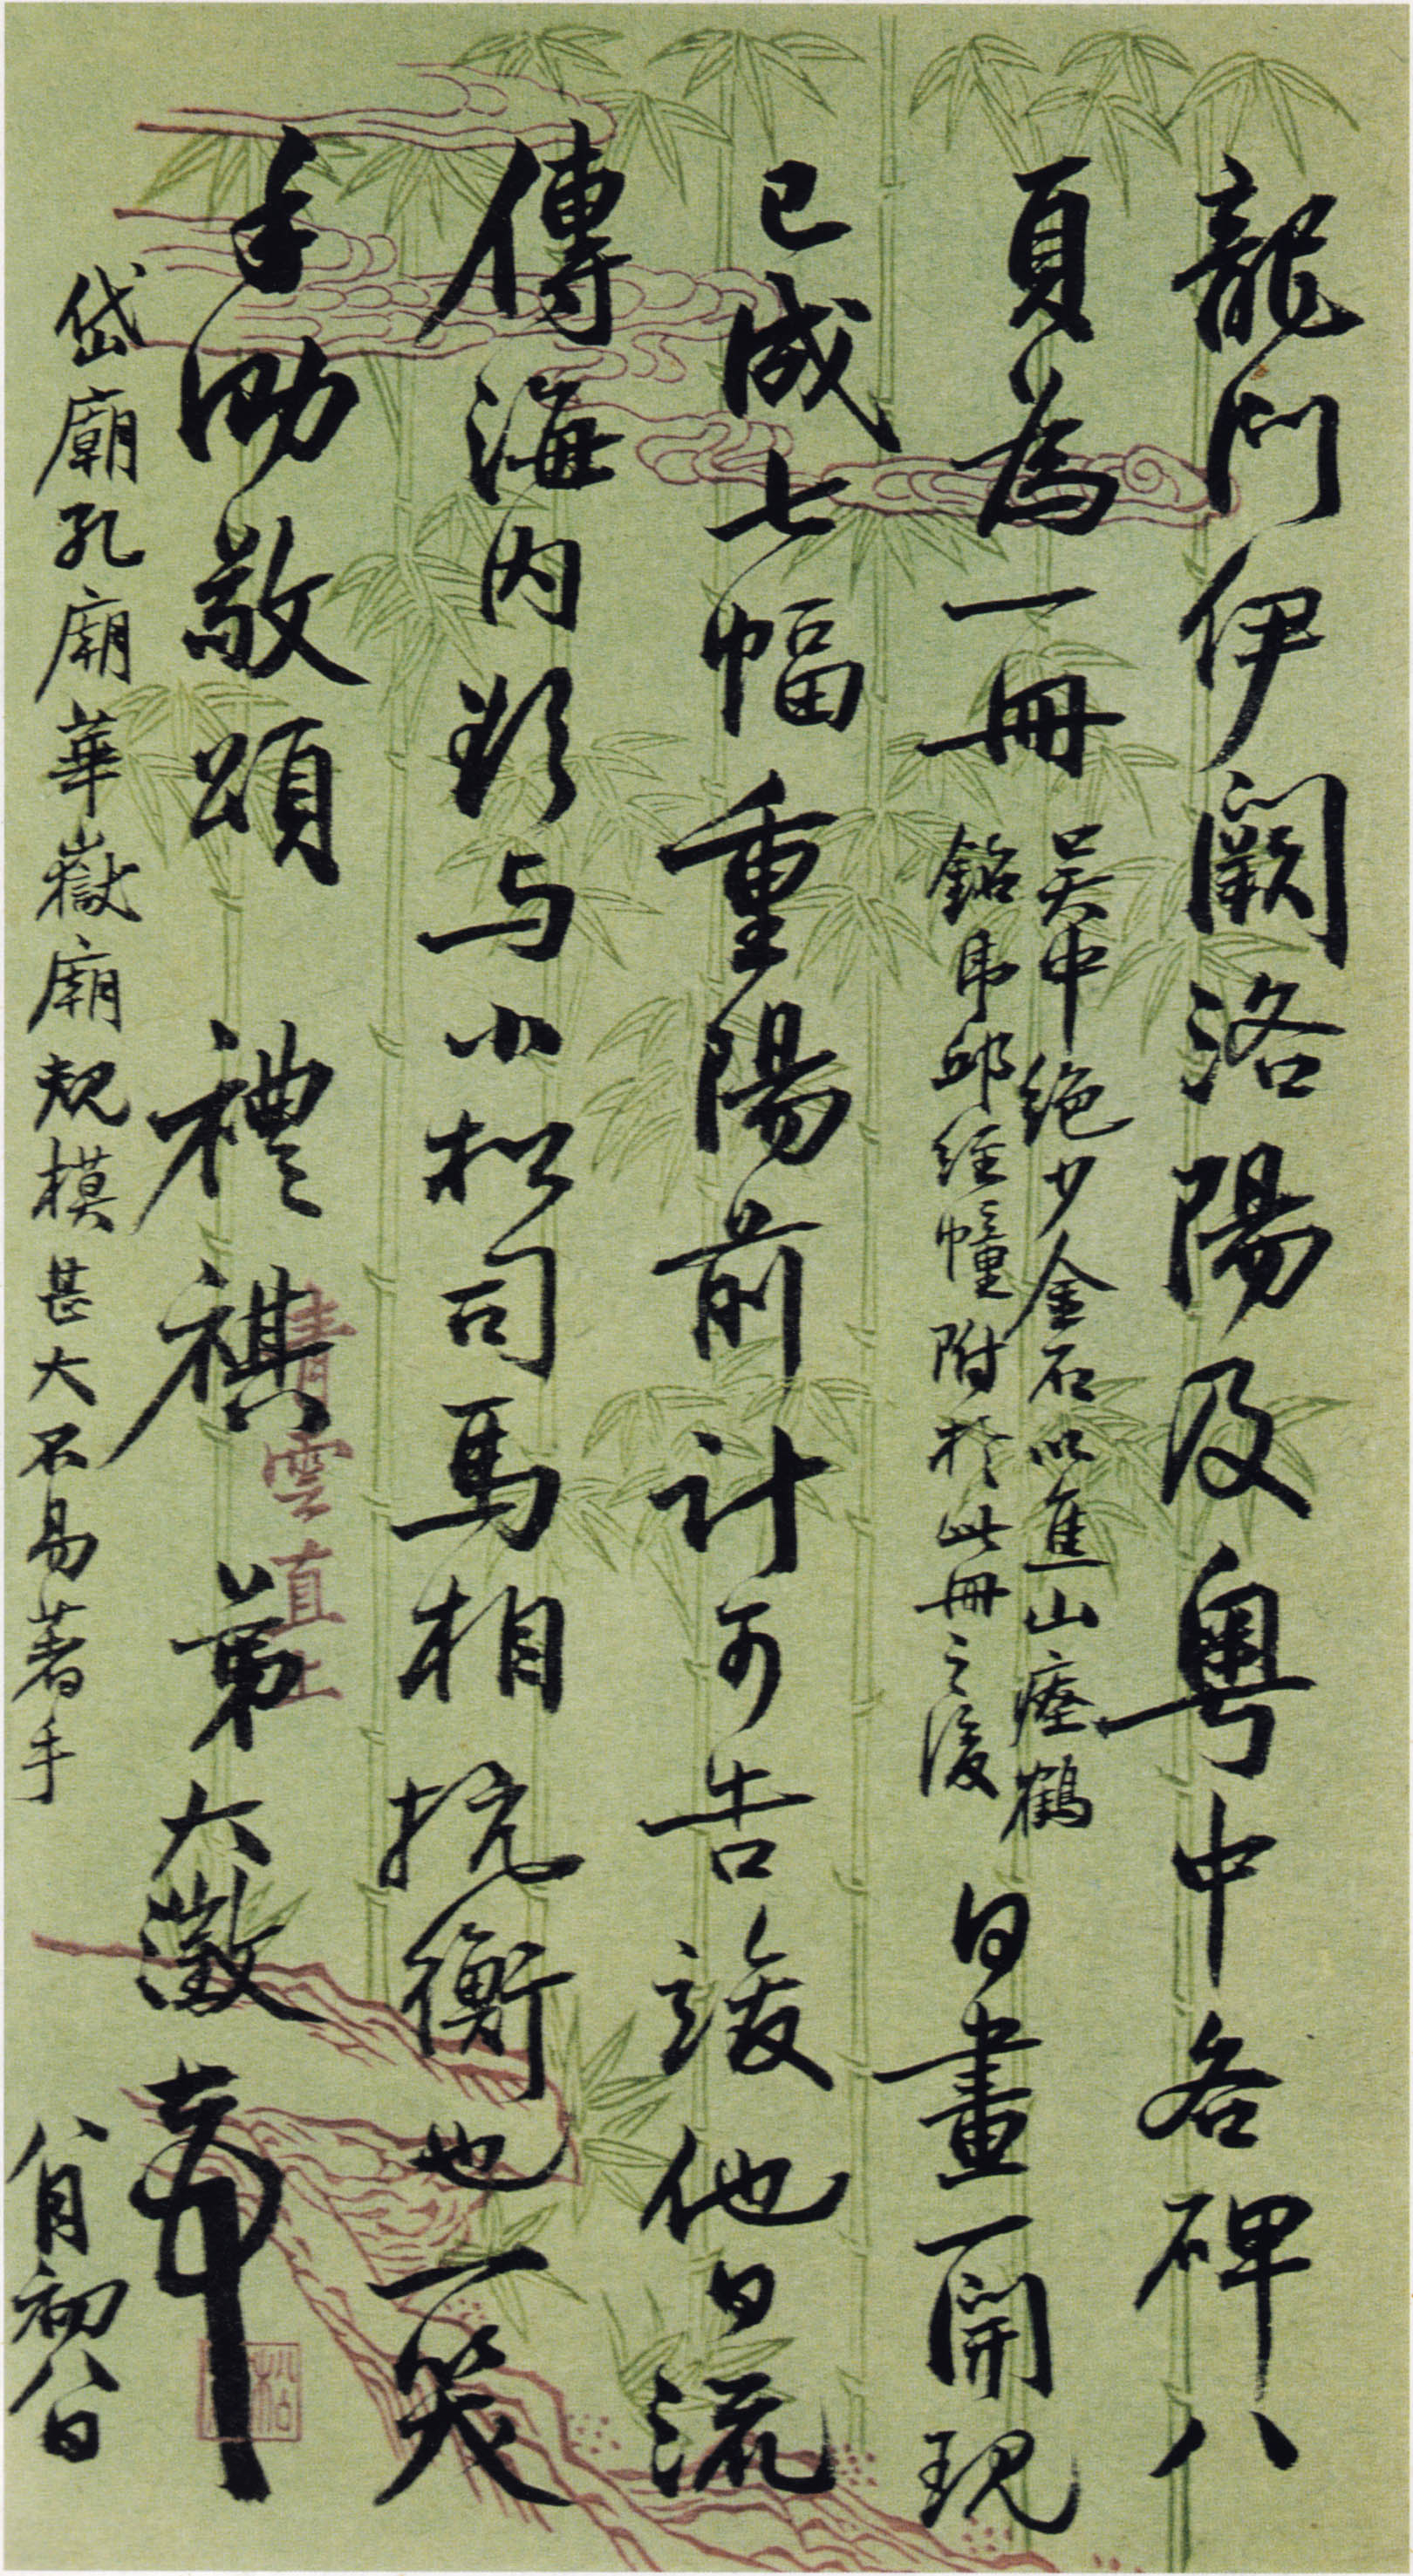 龍門伊闕洛陽及粵中各碑八
頁為一冊
吳中絕少金石以焦山瘞鶴
銘虎邱經幢附於此冊之後
日畫一開現
已成七幅重陽前計可告竣他日流
傳海内与小松司馬相抗衡也一笑
手泐敬頌 禮祺 弟大澂頓首
岱廟孔廟華嶽廟規模甚大不易著手
八月初八日
青雲直上